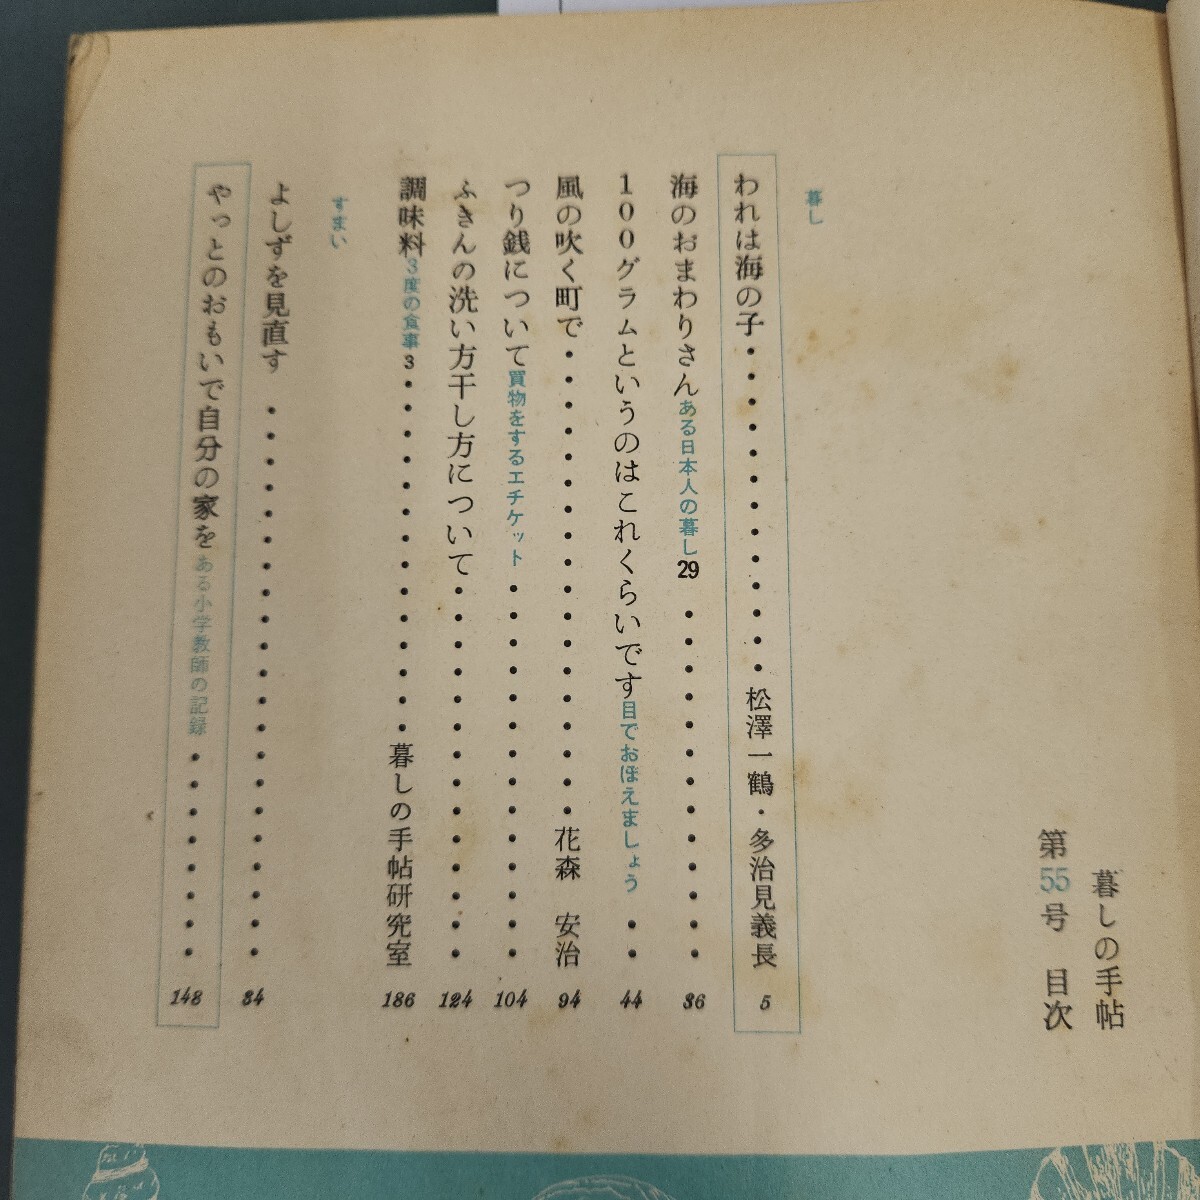 暮しの手帖
第55号 目次
暮し
われは海の子・・・・・・・・・・・・・松澤一鶴・多治見義長 5
海のおまわりさん ある日本人の暮し29・・・・・・・・・・・・・ 36
100グラムというのはこれくらいです 目でおぼえましょう・・ 44
風の吹く町で・・・・・・・・・・・・・・・・・・花森 安治 94
つり銭について 買物をするエチケット・・・・・・・・・・・・・・ 104
ふきんの洗い方干し方について・・・・・・・・・・・・・・ 124
調味料 3度の食事3・・・・・・・・・・・・・・暮しの手帖研究室 186
すまい
よしずを見直す・・・・・・・・・・・・・・・・・・・・・ 84
やっとのおもいで自分の家を ある小学教師の記録・・・・・・・・ 148